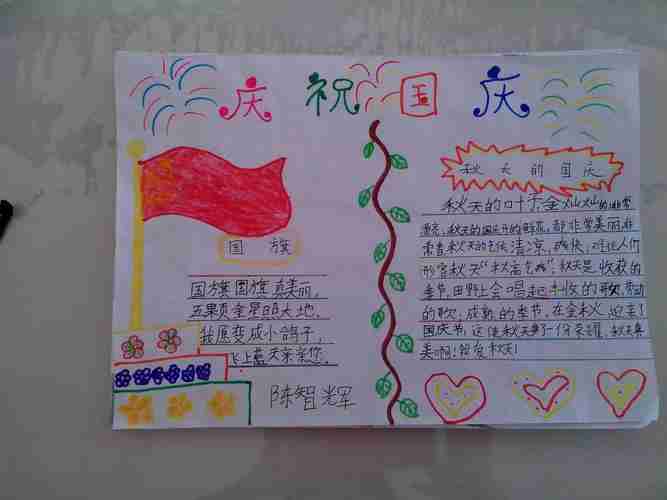 庆祝国庆
国旗
国旗国旗真美丽，
五星照大地，
我愿变成小鸽子，
飞上蓝天亲亲您。
陈智辉
秋天的国庆
秋天的叶子金灿灿的非常
漂亮，秋天的鲜花，都非常美丽，非
常喜欢秋天的清凉，爽快，人们
形容秋天“秋高气爽”，秋天是收获的
季节，田野上会唱起丰收的歌
的歌，成熟的季节，在金秋，迎来了
国庆节，这使秋天多了一份荣耀，秋天真
美啊！我爱秋天！